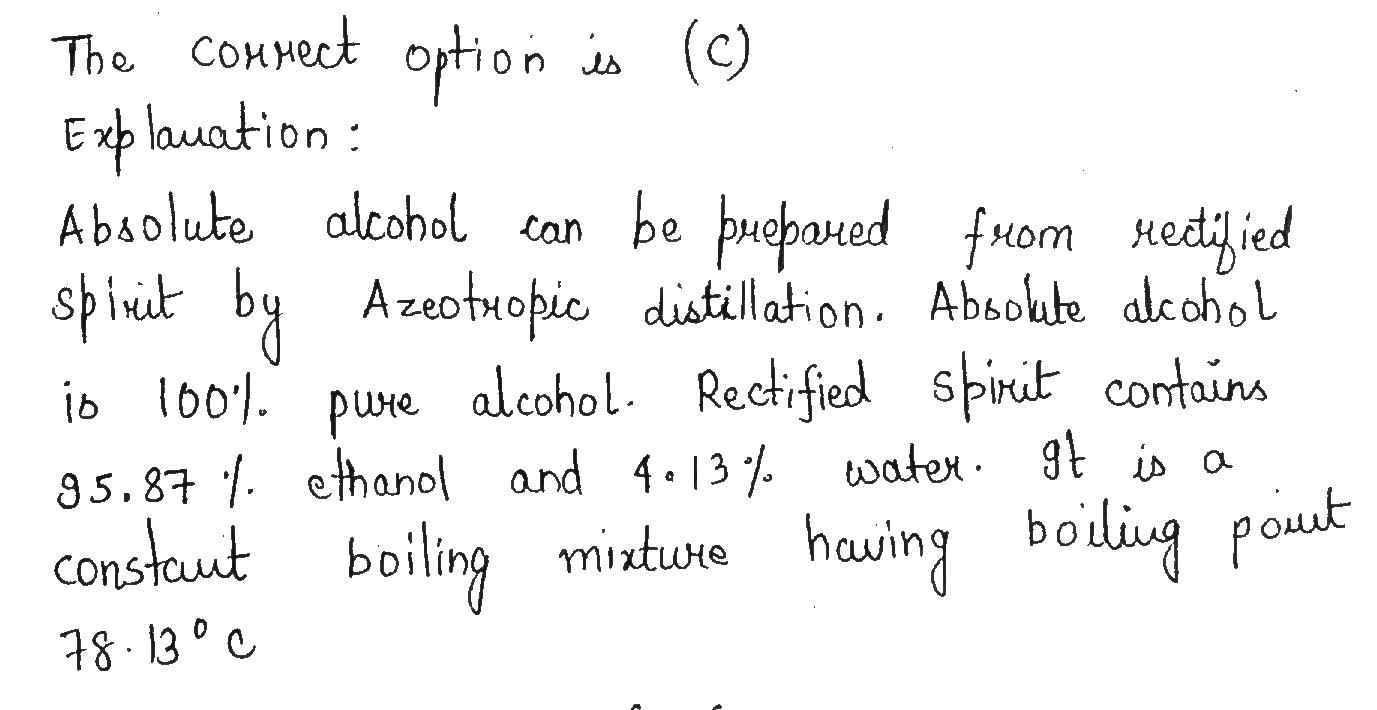 The correct option is (C)
Explanation :
Absolute alcohol can be prepared from rectified
spirit by Azeotropic distillation. Absolute alcohol
is 100% pure alcohol. Rectified spirit contains
95.87 % ethanol and 4.13 % water. It is a
constant boiling mixture having boiling point
78.13° C